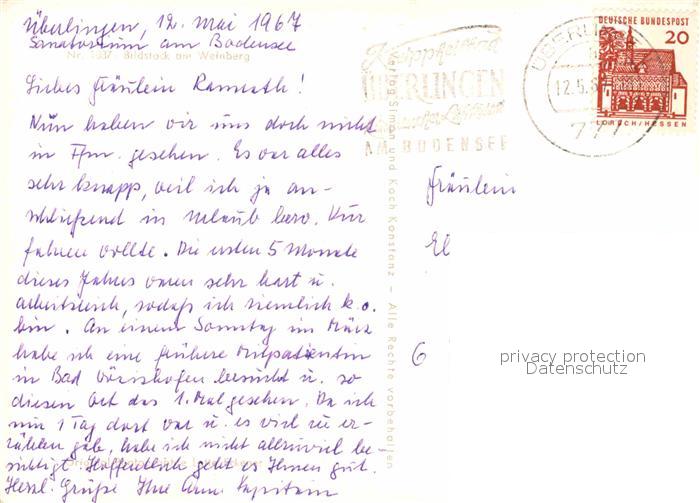 Überlingen, 12. Mai 1967
Sanatorium am Bodensee
Nr. 1537 Bildstock am Weinberg
Liebes Fräulein Ramrath!
Nun haben wir uns doch nicht
in Ffm. gesehen. Es war alles
sehr knapp, weil ich ja an-
schließend in Urlaub bzw. Kur
fahren wollte. Die ersten 5 Monate
dieses Jahres waren sehr hart u.
arbeitsreich, sodaß ich ziemlich k.o.
bin. An einem Sonntag im März
habe ich eine frühere Mitpatientin
in Bad Wörishofen besucht u. so
diesen Ort das 1. Mal gesehen. Da ich
nur 1 Tag dort war u. es viel zu er-
zählen gab, habe ich nicht allzuviel be-
sichtigt. Hoffentlich geht es Ihnen gut.
Herzl. Grüße Ihre Kapitain
Verlag Simon und Koch Konstanz - Alle Rechte vorbehalten
Kneippheilbad
ÜBERLINGEN
AM BODENSEE
ÜBERLIN
12.5.6
777
DEUTSCHE BUNDESPOST
20
LORSCH/HESSEN
Fräulein
El
6
privacy protection
Datenschutz